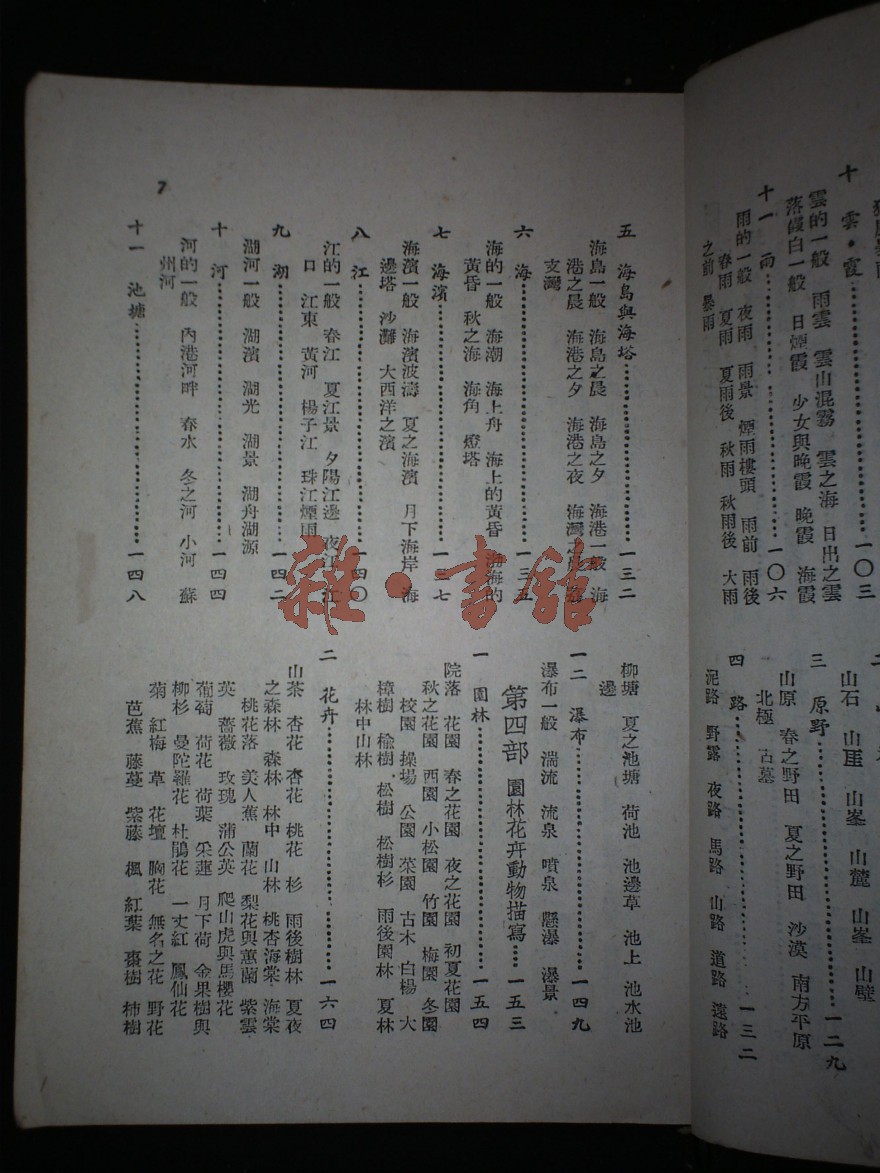 十 雲·霞……一〇三
雲的一般 雨雲 雲山混霧 雲之海 日出之雲
落霞白一般 日煙霞 少女與晚霞 晚霞 海霞
十一 雨……一〇六
雨的一般 夜雨 雨景 煙雨樓頭 雨前 雨後
春雨 夏雨 夏雨後 秋雨 秋雨後 大雨
之前 暴雨
山石 山崖 山峯 山麓 山峯 山壁
三 原野……一二九
山原 春之野田 夏之野田 沙漠 南方平原
北極 古墓
四 路……一三二
泥路 野露 夜路 馬路 山路 道路 遠路
五 海島與海塔……一三二
海島一般 海島之晨 海島之夕 海港一般 海
港之晨 海港之夕 海港之夜 海灣之晨
支灣
六 海……一三五
海的一般 海潮 海上舟 海上的黃昏 渤海的
黃昏 秋之海 海角 燈塔
七 海濱……一三七
海濱一般 海濱波濤 夏之海濱 月下海岸 海
邊塔 沙灘 大西洋之濱
八 江……一四〇
江的一般 春江 夏江景 夕陽江邊 夜江 江
口 江東 黃河 楊子江 珠江煙雨
九 湖……一四二
湖河一般 湖濱 湖光 湖景 湖舟湖源
十 河……一四四
河的一般 內港河畔 春水 冬之河 小河 蘇
州河
十一 池塘……一四八
柳塘 夏之池塘 荷池 池邊草 池上 池水池
邊
一二 瀑布……一四九
瀑布一般 湍流 流泉 噴泉 懸瀑 瀑景
第四部 園林花卉動物描寫……一五三
一 園林……一五四
院落 花園 春之花園 夜之花園 初夏花園
秋之花園 西園 小松園 竹園 梅園 冬園
校園 操場 公園 菜園 古木 白楊 大
樟樹 楡樹 松樹 松樹杉 雨後園林 夏林
林中山林
二 花卉……一六四
山茶 杏花 杏花 桃花 杉 雨後樹林 夏夜
之森林 森林 林中 山林 桃杏海棠 海棠
桃花落 美人蕉 蘭花 梨花與蕙蘭 紫雲
英 薔薇 玫瑰 蒲公英 爬山虎與馬櫻花
葡萄 荷花 荷葉 采蓮 月下荷 金果樹與
柳杉 曼陀羅花 杜鵑花 一丈紅 鳳仙花
菊 紅梅 草 花壇 胸花 無名之花 野花
芭蕉 藤蔓 紫藤 楓 紅葉 棗樹 柿樹
7
雜·書館